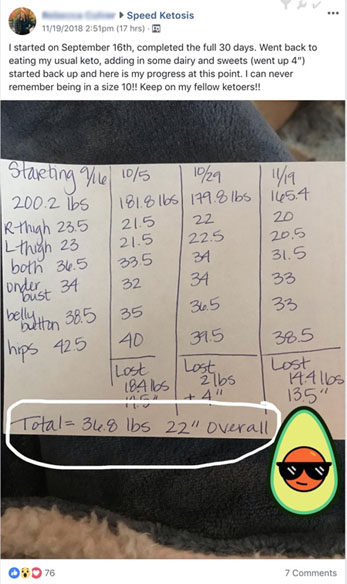 Speed Ketosis
11/19/2018 2:51pm (17 hrs)
I started on September 16th, completed the full 30 days. Went back to
eating my usual keto, adding in some dairy and sweets (went up 4")
started back up and here is my progress at this point. I can never
remember being in a size 10!! Keep on my fellow ketoers!!
Starting 9/16 10/5 10/29 11/19
200.2 lbs 181.8 lbs 179.8 lbs 165.4
R-thigh 23.5 21.5 22 20
L-thigh 23 21.5 22.5 20.5
both 36.5 33.5 34 31.5
under bust 34 32 34 33
belly button 38.5 35 36.5 33
hips 42.5 40 39.5 38.5
Lost Lost Lost
18.4 lbs 2 lbs 14.4 lbs
11.5" + 4" 13.5"
Total = 36.8 lbs 22" Overall
76 7 Comments